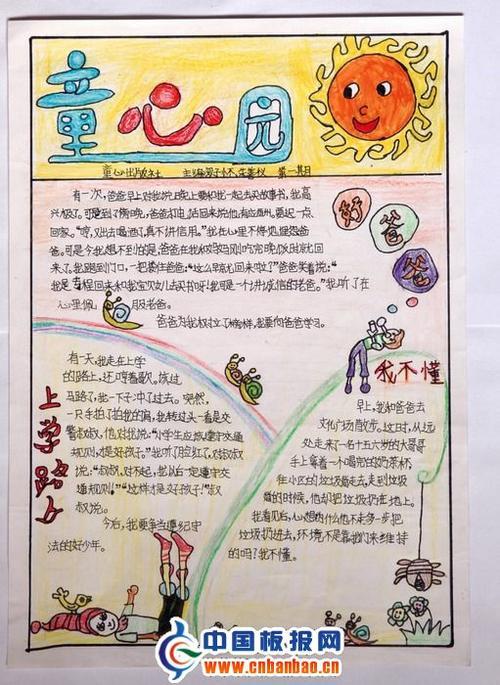 童心园
童心出版社 主编 第一期
好爸爸
有一次,爸爸早上对我说晚上要和我一起去买故事书,我高
兴极了。可是到了傍晚,爸爸打电话回来说他有应酬,要迟一点
回家。"哼,又出去喝酒了,真不讲信用。"我在心里不停地埋怨爸
爸。可是令我想不到的是,爸爸在我和妈妈刚吃完晚饭后就回
来了。我跑到门口,一把搂住爸爸:"这么早就回来啦?"爸爸笑着说:"
我是专程回来和我宝贝女儿去买书呀!我可是一个讲诚信的老爸。"我听了在
心里佩服老爸。
爸爸为我树立了榜样,我要向爸爸学习。
上学路上
有一天,我走在上学
的路上,还哼着歌,该过
马路了,我一下子冲了过去。突然,
一只手拍了拍我的肩,我转过头一看是交
警叔叔,他对我说:"小学生应该遵守交通
规则,才是好孩子。"我听了脸红了,对叔叔
说:"叔叔,对不起,我以后一定遵守交
通规则!""这样才是好孩子!"叔
叔说。
今后,我要争当遵纪守
法的好少年。
我不懂
早上,我和爸爸去
文化广场散步。这时,从远
处走来了一名十五六岁的大哥哥
手上拿着一个喝完的奶茶杯
在小区的垃圾桶边走,走到垃圾
桶的时候,他却把垃圾扔在地上。
我看见后,心想为什么他不走多一步把
垃圾扔进去,环境不是靠我们来维持
的吗?我不懂。
中国板报网
www.cnbanbao.cn